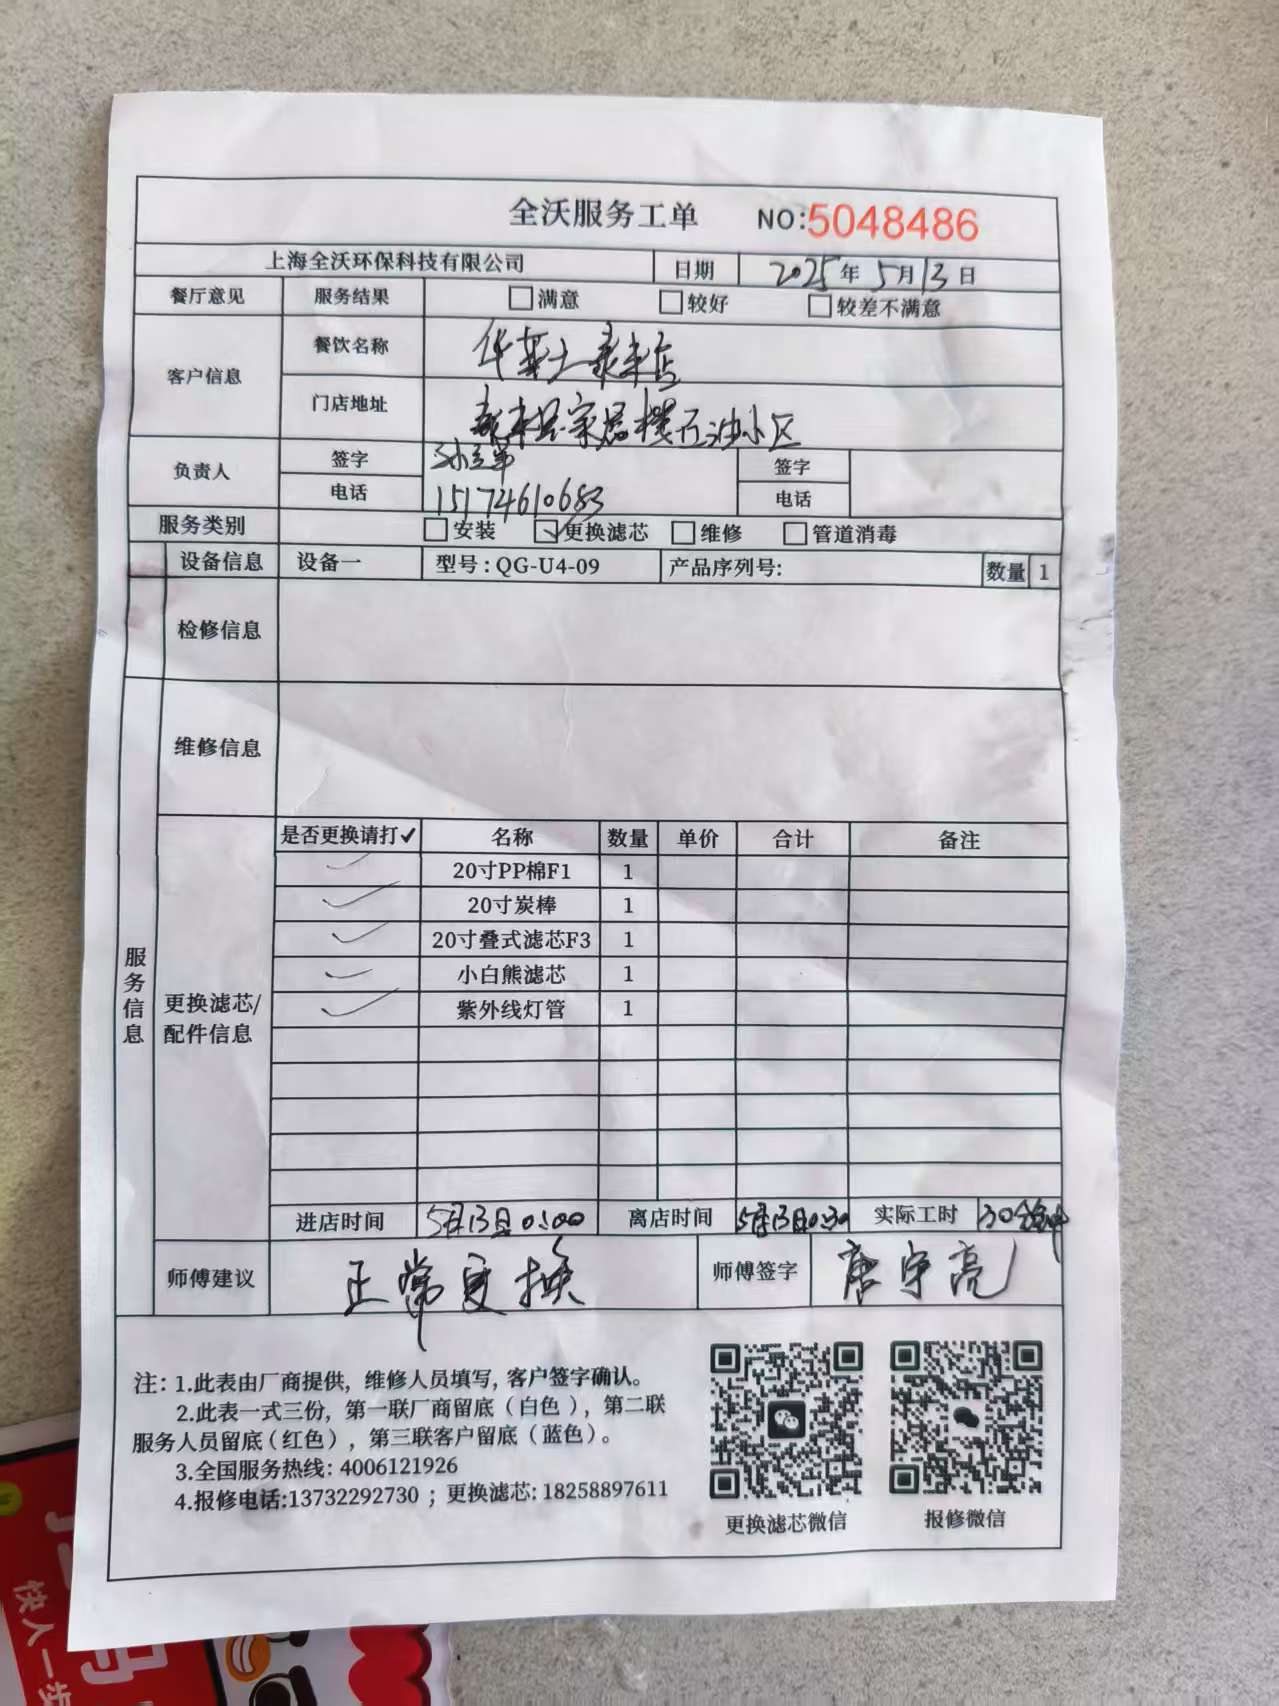 全沃服务工单 NO:5048486
上海全沃环保科技有限公司 日期 2025年5月13日
餐厅意见 服务结果 □满意 □较好 □较差不满意
客户信息 餐饮名称 华莱士泰来店
门店地址 泰来县家居楼石油小区
负责人 签字 签字
电话 15174610683 电话
服务类别 □安装 ☑更换滤芯 □维修 □管道消毒
设备信息 设备一 型号:QG-U4-09 产品序列号: 数量 1
检修信息
维修信息
服务信息
更换滤芯/配件信息
是否更换请打✓ 名称 数量 单价 合计 备注
✓ 20寸PP棉F1 1
✓ 20寸炭棒 1
✓ 20寸叠式滤芯F3 1
✓ 小白熊滤芯 1
✓ 紫外线灯管 1
进店时间 5月13日 0:00 离店时间 5月13日0:30 实际工时 30分钟
师傅建议 正常更换 师傅签字 唐宇亮
注:1.此表由厂商提供,维修人员填写,客户签字确认。
2.此表一式三份,第一联厂商留底(白色),第二联
服务人员留底(红色),第三联客户留底(蓝色)。
3.全国服务热线:4006121926
4.报修电话:13732292730;更换滤芯:18258897611
更换滤芯微信 报修微信
快人一步